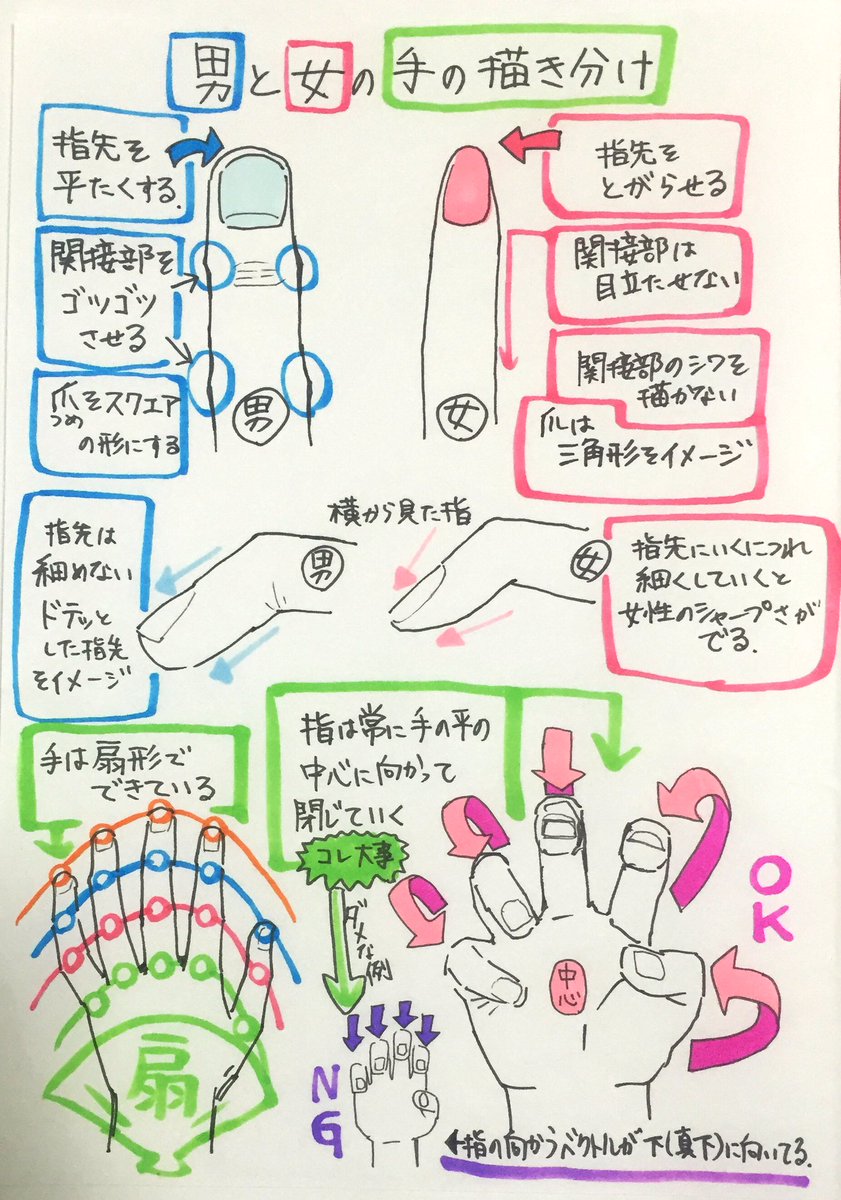 男と女の手の描き分け
指先を
平たくする.
関接部を
ゴツゴツ
させる
爪をスクエア
つめ
の形にする
男
指先を
とがらせる
関接部は
目立たせない
関接部のシワを
描かない
爪は
三角形をイメージ
女
横から見た指
指先は
細めない
ドテッと
した指先
をイメージ
男
女
指先にいくにつれ
細くしていくと
女性のシャープさが
でる.
手は扇形で
できている
扇
指は常に手の平の
中心に向かって
閉じていく
コレ大事
ダメな例
中心
OK
NG
←指の向かうベクトルが下(真下)に向いてる.